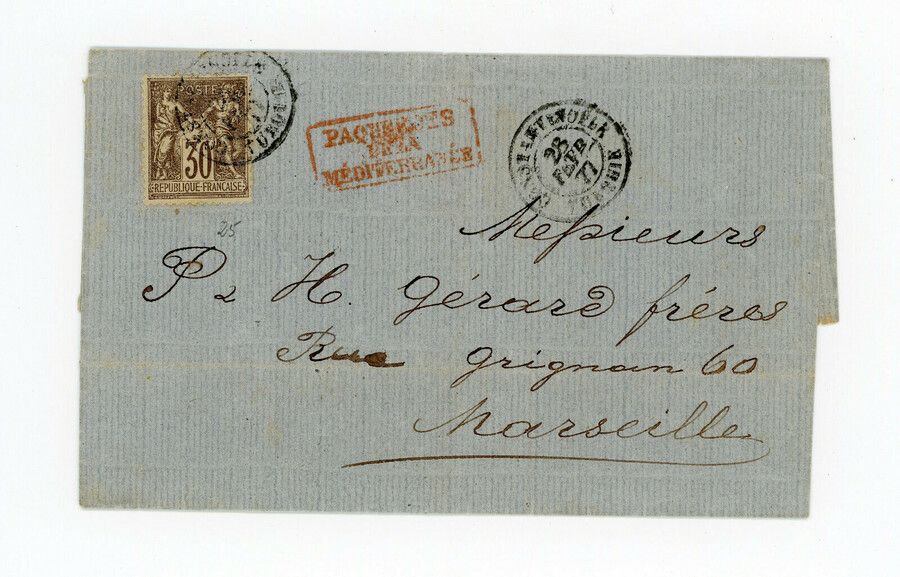 POSTE
30
REPUBLIQUE·FRANÇAISE
PAQUEBOTS
DE LA
MÉDITERRANÉE
25
FEVR
77
25
Messieurs
P & H. Gérard frères
Rue Grignan 60
Marseille